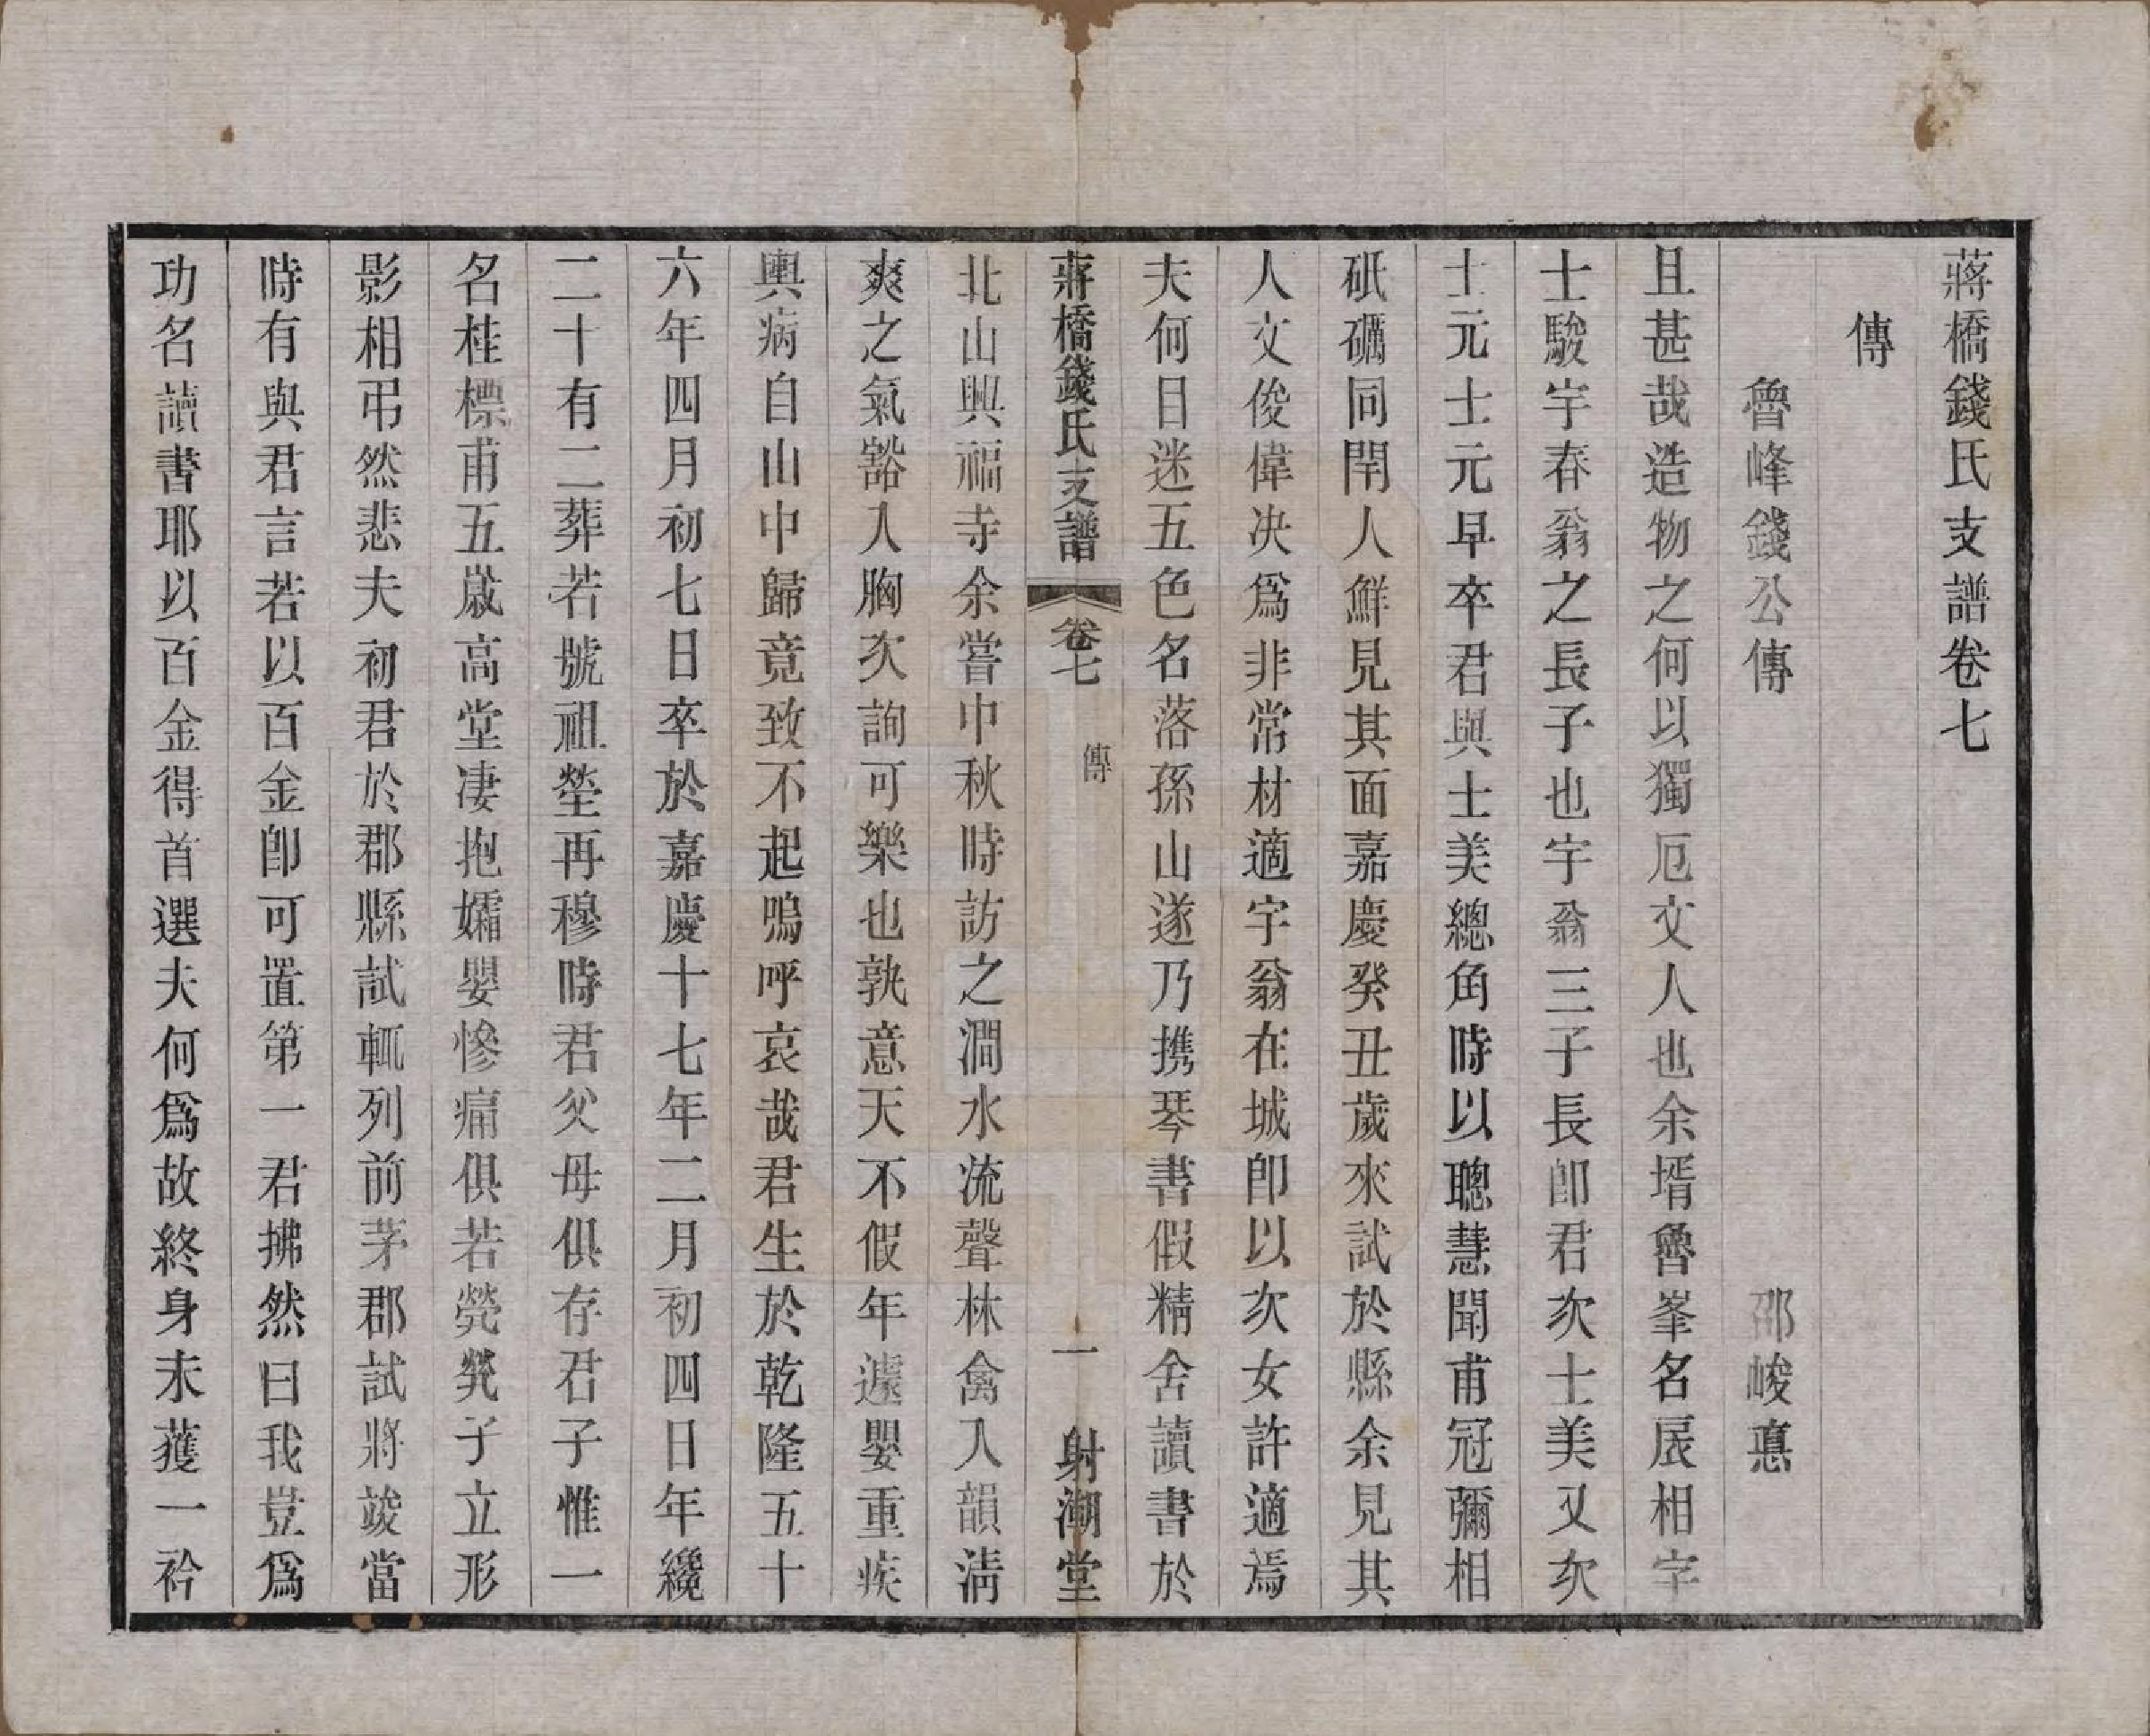 蔣橋錢氏支譜卷七
傳
魯峰錢公傳
邵峻憙
且甚哉造物之何以獨厄文人也余壻魯峯名扆相字
士駿宇春翁之長子也宇翁三子長卽君次士美又次
士元士元早卒君與士美總角時以聰慧聞甫冠彌相
砥礪同閈人鮮見其面嘉慶癸丑歲來試於縣余見其
人文俊偉決爲非常材適宇翁在城卽以次女許適焉
夫何目迷五色名落孫山遂乃携琴書假精舍讀書於
蔣橋錢氏支譜
卷七
傳
一
射湖堂
北山興福寺余嘗中秋時訪之澗水流聲林禽入韻淸
爽之氣豁人胸次詢可樂也孰意天不假年遽嬰重疾
輿病自山中歸竟致不起嗚呼哀哉君生於乾隆五十
六年四月初七日卒於嘉慶十七年二月初四日年纔
二十有二葬若號祖塋再穆時君父母俱存君子惟一
名桂標甫五歲高堂凄抱孀嬰慘痛俱若煢煢孑立形
影相弔然悲夫初君於郡縣試輒列前茅郡試將竣當
時有與君言若以百金卽可置第一君拂然曰我豈爲
功名讀書耶以百金得首選夫何爲故終身未獲一衿